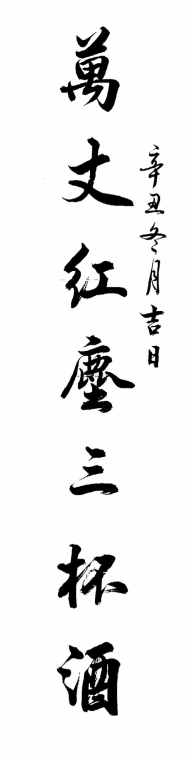 辛丑冬月吉日
萬丈红塵三杯酒